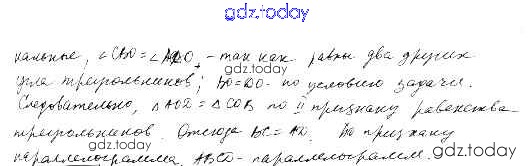 gdz.today
кальные, ∠CBO = ∠ADO, - так как равны два других
gdz.today gdz.today
угла треугольников; BO=DO - по условию задачи.
Следовательно, △AOD = △COB по II признаку равенства
треугольников. Отсюда BC = AD. По признаку
gdz.today gdz.today
параллелограмма, ABCD - параллелограмм.